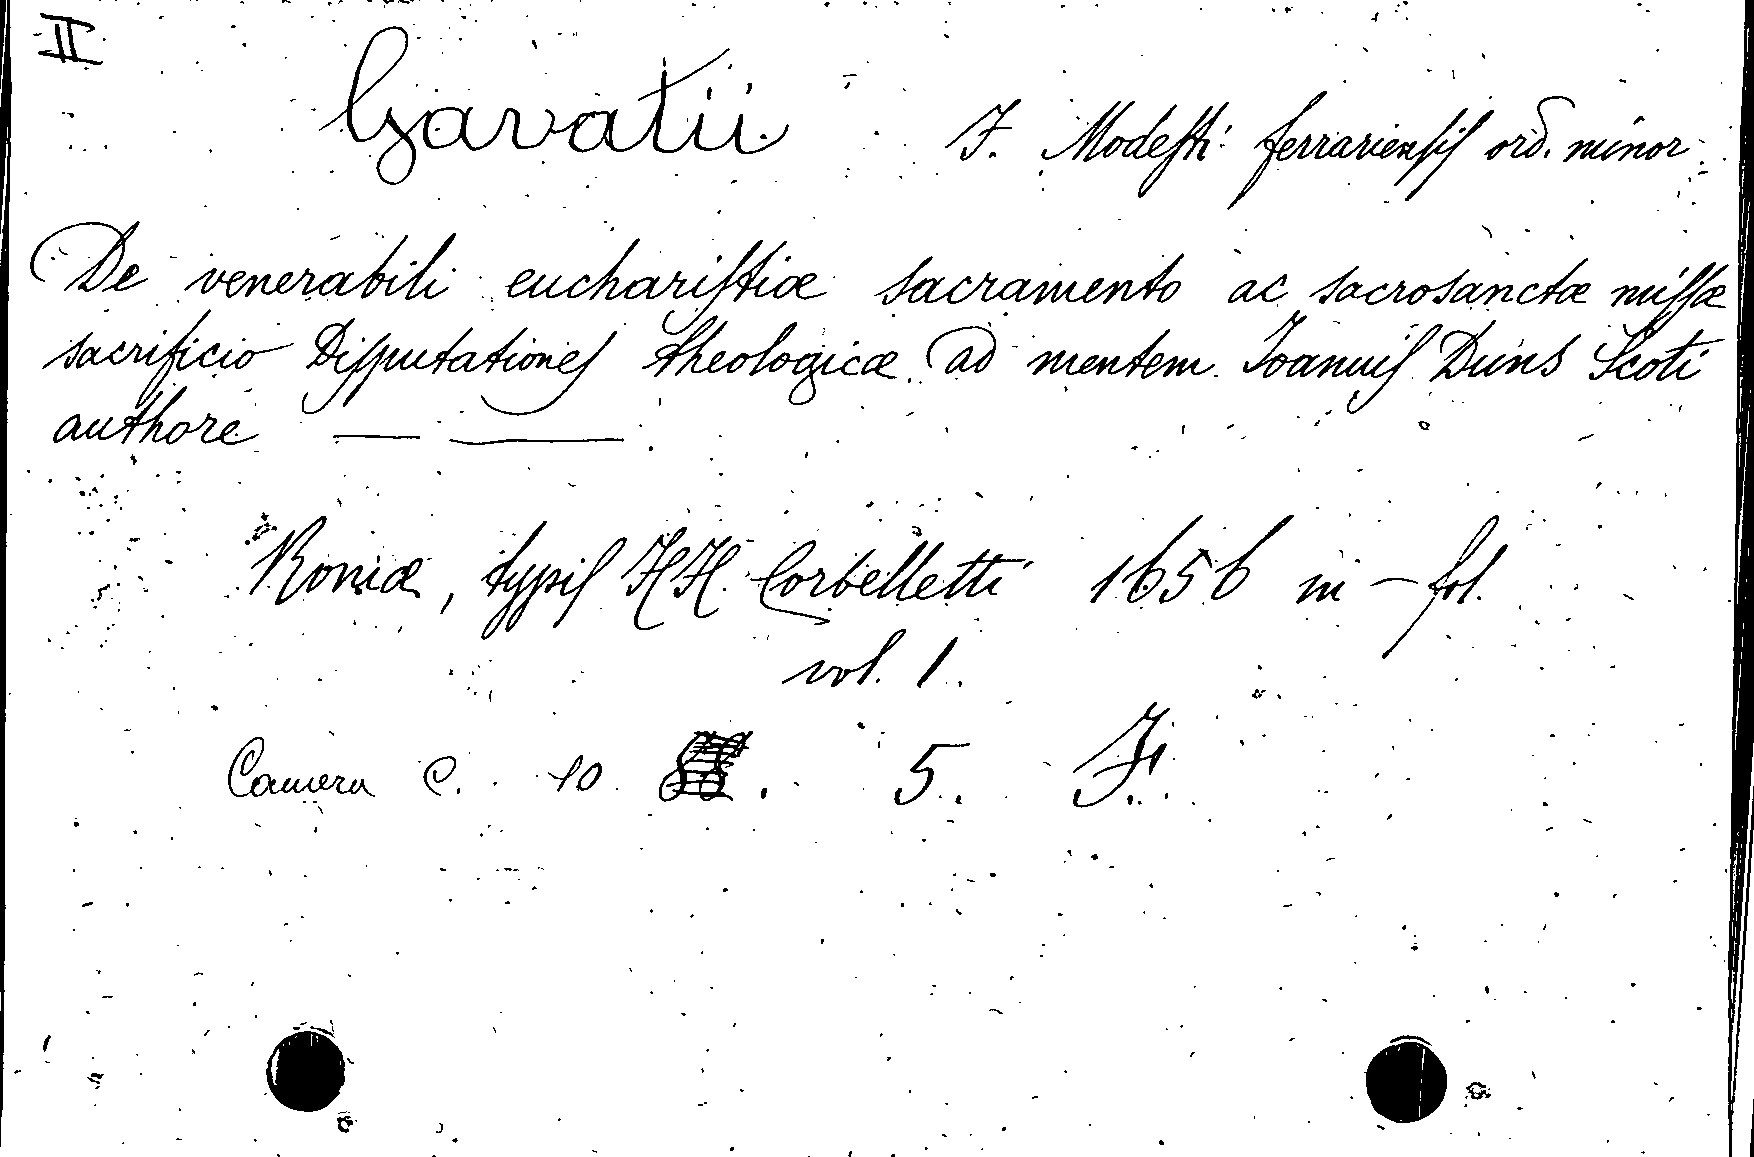 II
Gavatii F. Modesti ferrariensis ord. minor.
De venerabili eucharistiæ sacramento ac sacrosanctæ missæ
sacrificio Disputationes theologicæ ad mentem Joannis Duns Scoti
authore — —
Romæ, typis HH. Corbelletti 1656 in-fol.
vol. 1.
Camera C. 10 . 5. F.